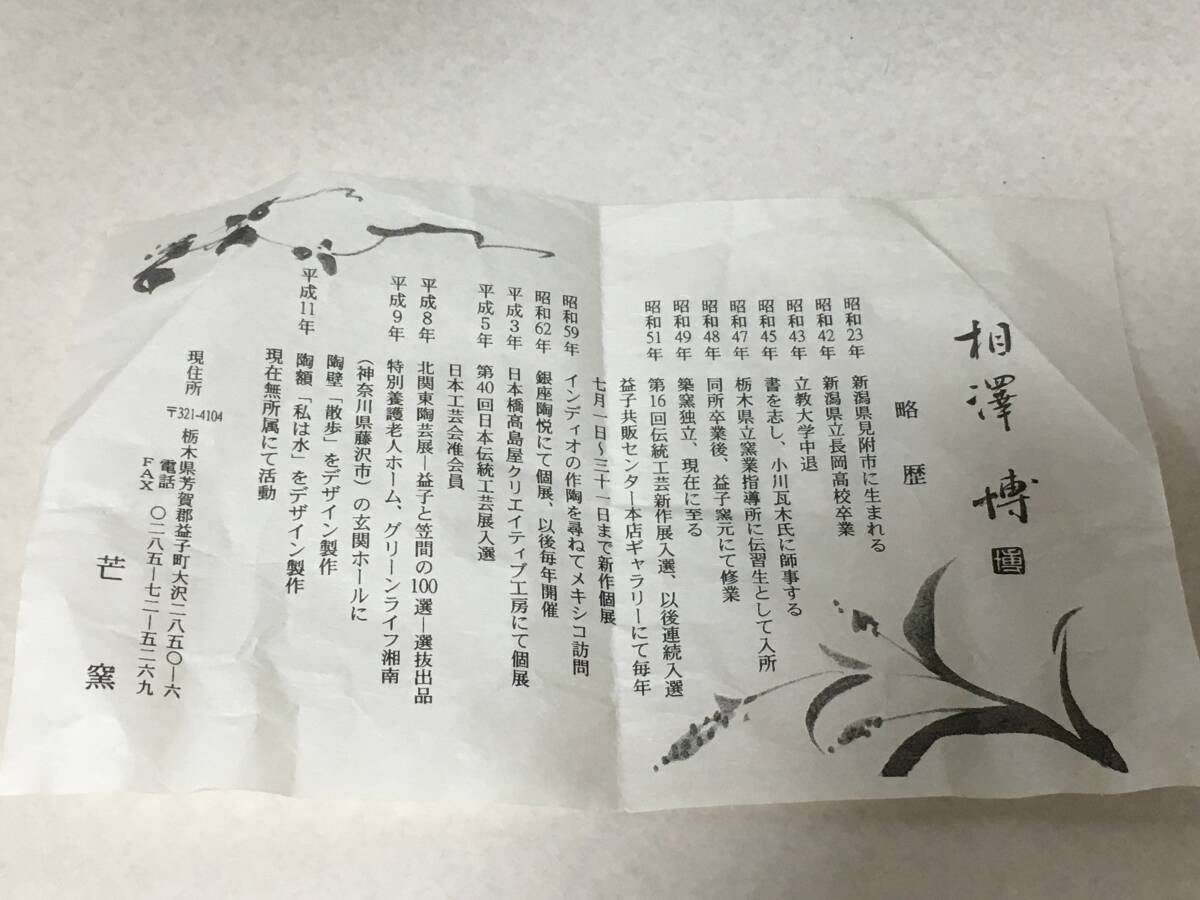 相澤 博
博
略歴
昭和23年 新潟県見附市に生まれる
昭和42年 新潟県立長岡高校卒業
昭和43年 立教大学中退
昭和45年 書を志し、小川瓦木氏に師事する
昭和47年 栃木県立窯業指導所に伝習生として入所
昭和48年 同所卒業後、益子窯元にて修業
昭和49年 築窯独立、現在に至る
昭和51年 第16回伝統工芸新作展入選、以後連続入選
益子共販センター本店ギャラリーにて毎年
七月一日〜三十一日まで新作個展
昭和59年 インディオの作陶を尋ねてメキシコ訪問
昭和62年 銀座陶悦にて個展、以後毎年開催
平成3年 日本橋高島屋クリエイティブ工房にて個展
平成5年 第40回日本伝統工芸展入選
日本工芸会准会員
平成8年 北関東陶芸展—益子と笠間の100選—選抜出品
平成9年 特別養護老人ホーム、グリーンライフ湘南
（神奈川県藤沢市）の玄関ホールに
陶壁「散歩」をデザイン製作
平成11年 陶額「私は水」をデザイン製作
現在無所属にて活動
現住所 〒321-4104 栃木県芳賀郡益子町大沢二八五〇—六
電話
FAX 〇二八五—七二—五二六九
芒窯